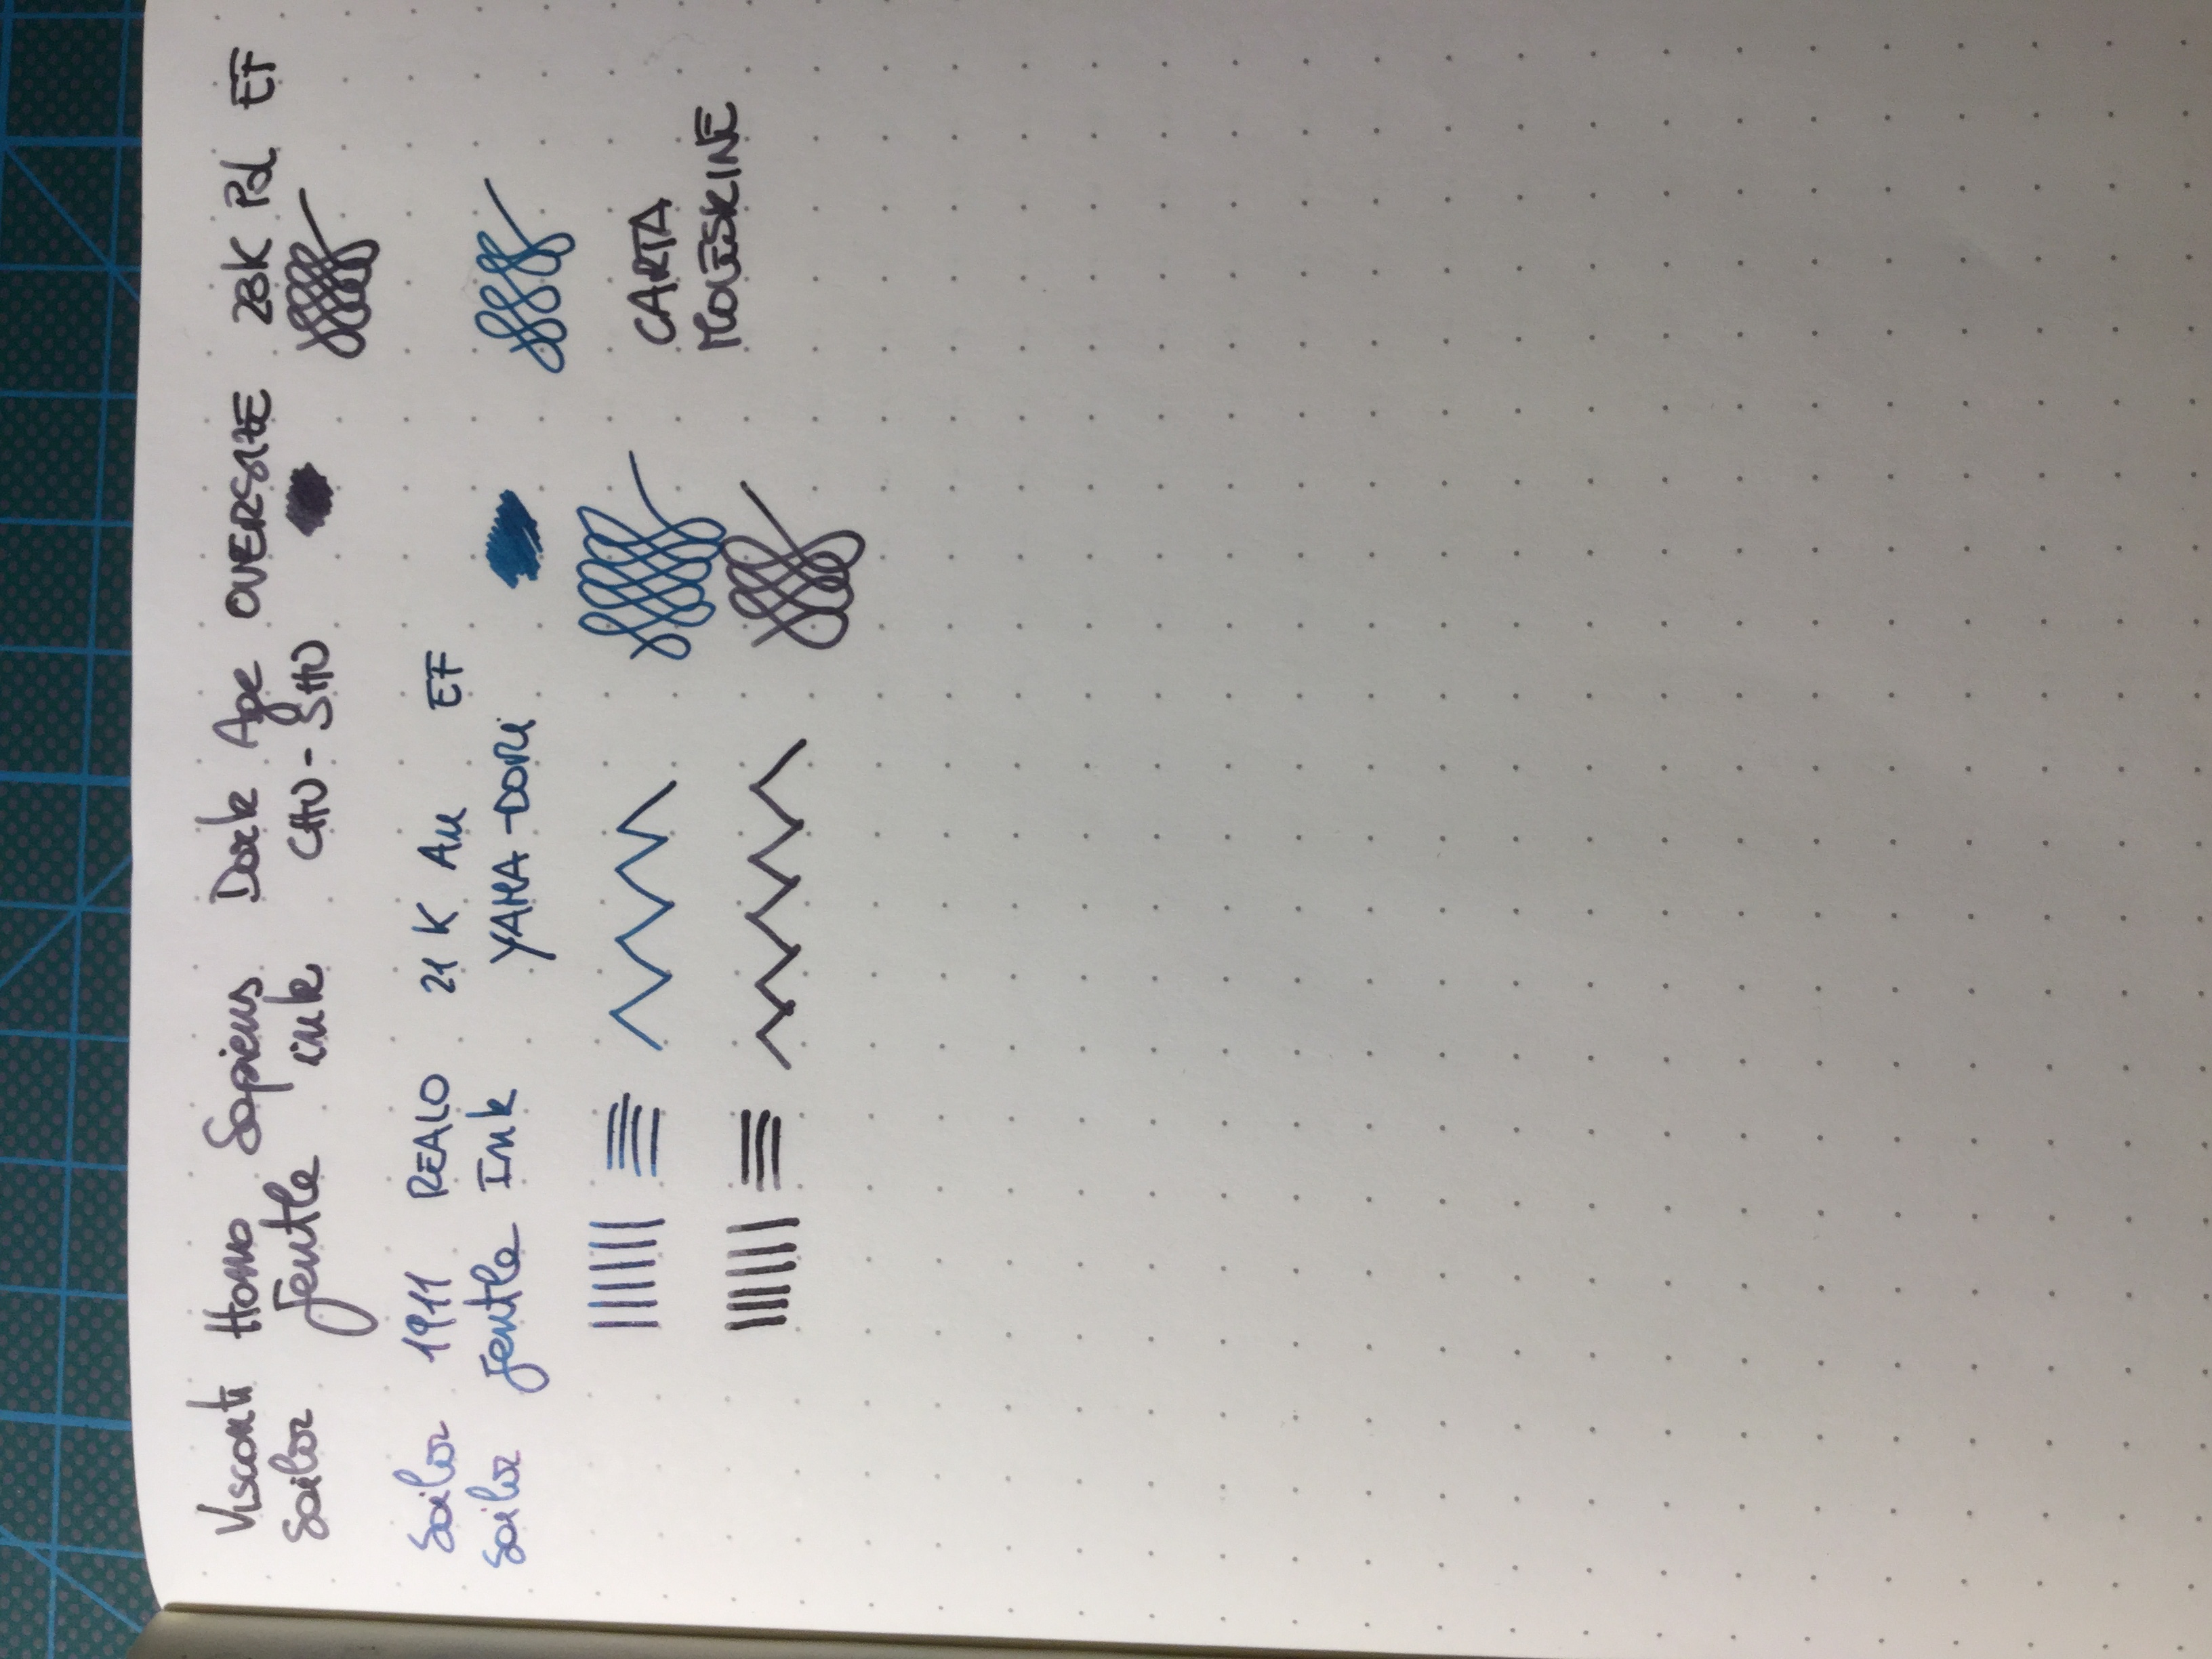 Visconti Homo Sapiens Dark Age OVERSIZE 23K Pd EF
Sailor Jentle ink CHU-SHU
Sailor 1911 REALO 21 K Au EF
Sailor Jentle Ink YAMA-DORI
CARTA
MOLESKINE